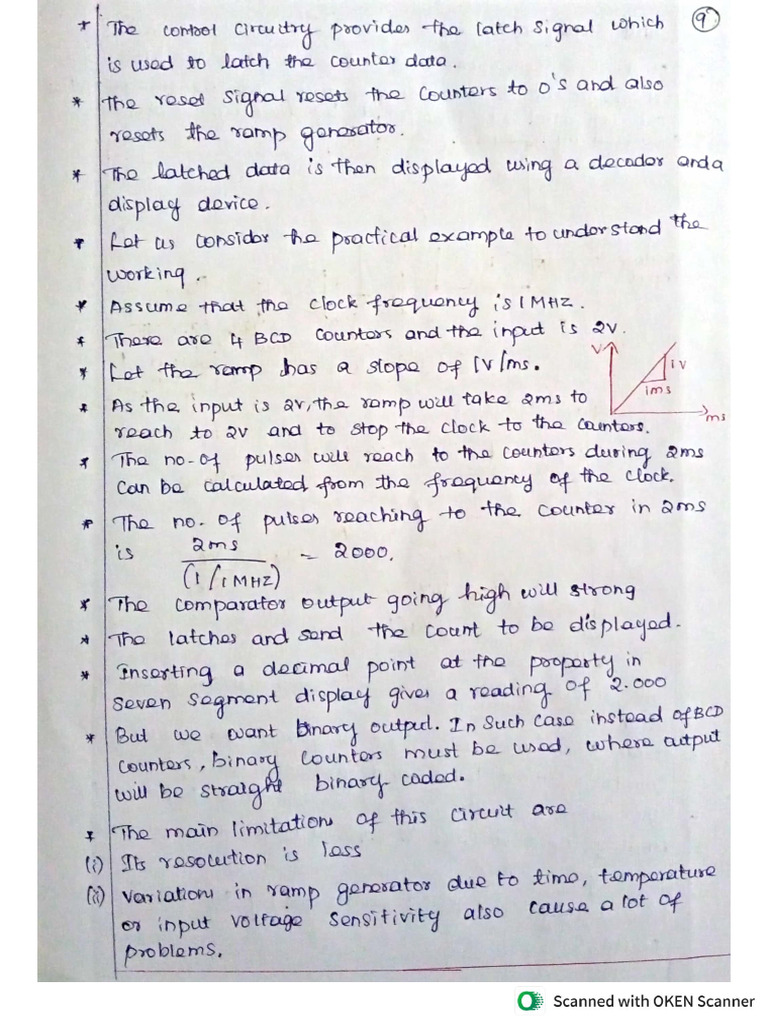 * The control circuitry provides the latch signal which 9
is used to latch the counter data.
* The reset signal resets the counters to 0's and also
resets the ramp generator.
* The latched data is then displayed using a decoder and a
display device.
* Let us consider the practical example to understand the
working.
* Assume that the clock frequency is 1 MHZ.
* There are 4 BCD counters and the input is 2V.
* Let the ramp has a slope of 1V/ms.
V
1V
1ms
ms
* As the input is 2V, the ramp will take 2ms to
reach to 2V and to stop the clock to the counters.
* The no-of pulses will reach to the counters during 2ms
can be calculated from the frequency of the clock.
* The no. of pulses reaching to the counter in 2ms
is 2ms / (1/1MHZ) = 2000.
* The comparator output going high will strong
* The latches and send the count to be displayed.
* Inserting a decimal point at the property in
seven segment display gives a reading of 2.000
* But we want binary output. In such case instead of BCD
counters, binary counters must be used, where output
will be straight binary coded.
* The main limitations of this circuit are
(i) Its resolution is less
(ii) Variations in ramp generator due to time, temperature
or input voltage sensitivity also cause a lot of
problems.
Scanned with OKEN Scanner